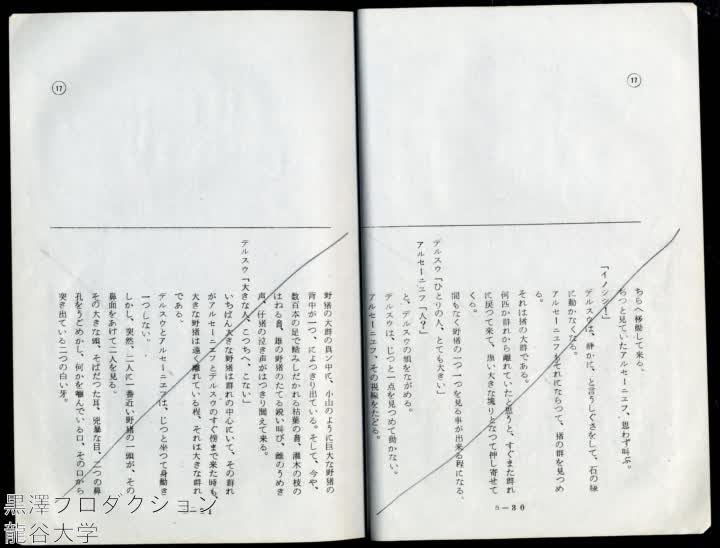 ⑰
ちらへ移動して来る。
ぢつと見ていたアルセーニエフ、思わず叫ぶ。
「イノシシ！」
デルスウは、静かに、と言うしぐさをして、石の様
に動かなくなる。
アルセーニエフもそれにならつて、猪の群を見つめ
る。
それは猪の大群である。
何匹か群れから離れていたと思うと、すぐまた群れ
に戻つて来て、黒い大きな塊りとなつて押し寄せて
くる。
間もなく野猪の一つ一つを見る事が出来る程になる。
デルスウ「ひとりの人、とても大きい」
アルセーニエフ「人？」
と、デルスウの顔をながめる。
デルスウは、じつと一点を見つめて動かない。
アルセーニエフ、その視線をたどる。
8－30
⑰
野猪の大群の真ン中に、小山のように巨大な野猪の
背中が一つ、によつきり出ている。そして、今や、
数百本の足で踏みしだかれる枯葉の音、灌木の枝の
はねる音、雄の野猪のたてる鋭い叫び、雌のうめき
声、仔猪の泣き声がはつきり聞えて来る。
デルスウ「大きな人、こつちへ、こない」
いちばん大きな野猪は群れの中心にいて、その群れ
がアルセーニエフとデルスウのすぐ傍まで来た時も、
大きな野猪は遠く離れている程、それは大きな群れ
である。
デルスウとアルセーニエフは、じつと坐つて身動き
一つしない。
しかし、突然、二人に一番近い野猪の一頭が、その
鼻面をあげて二人を見る。
その大きな頭、そばだつた耳、兇暴な目、二つの鼻
孔をうごめかし、何かを噛んでいる口、その口から
突き出ている二つの白い牙。
黒澤プロダクション
龍谷大学